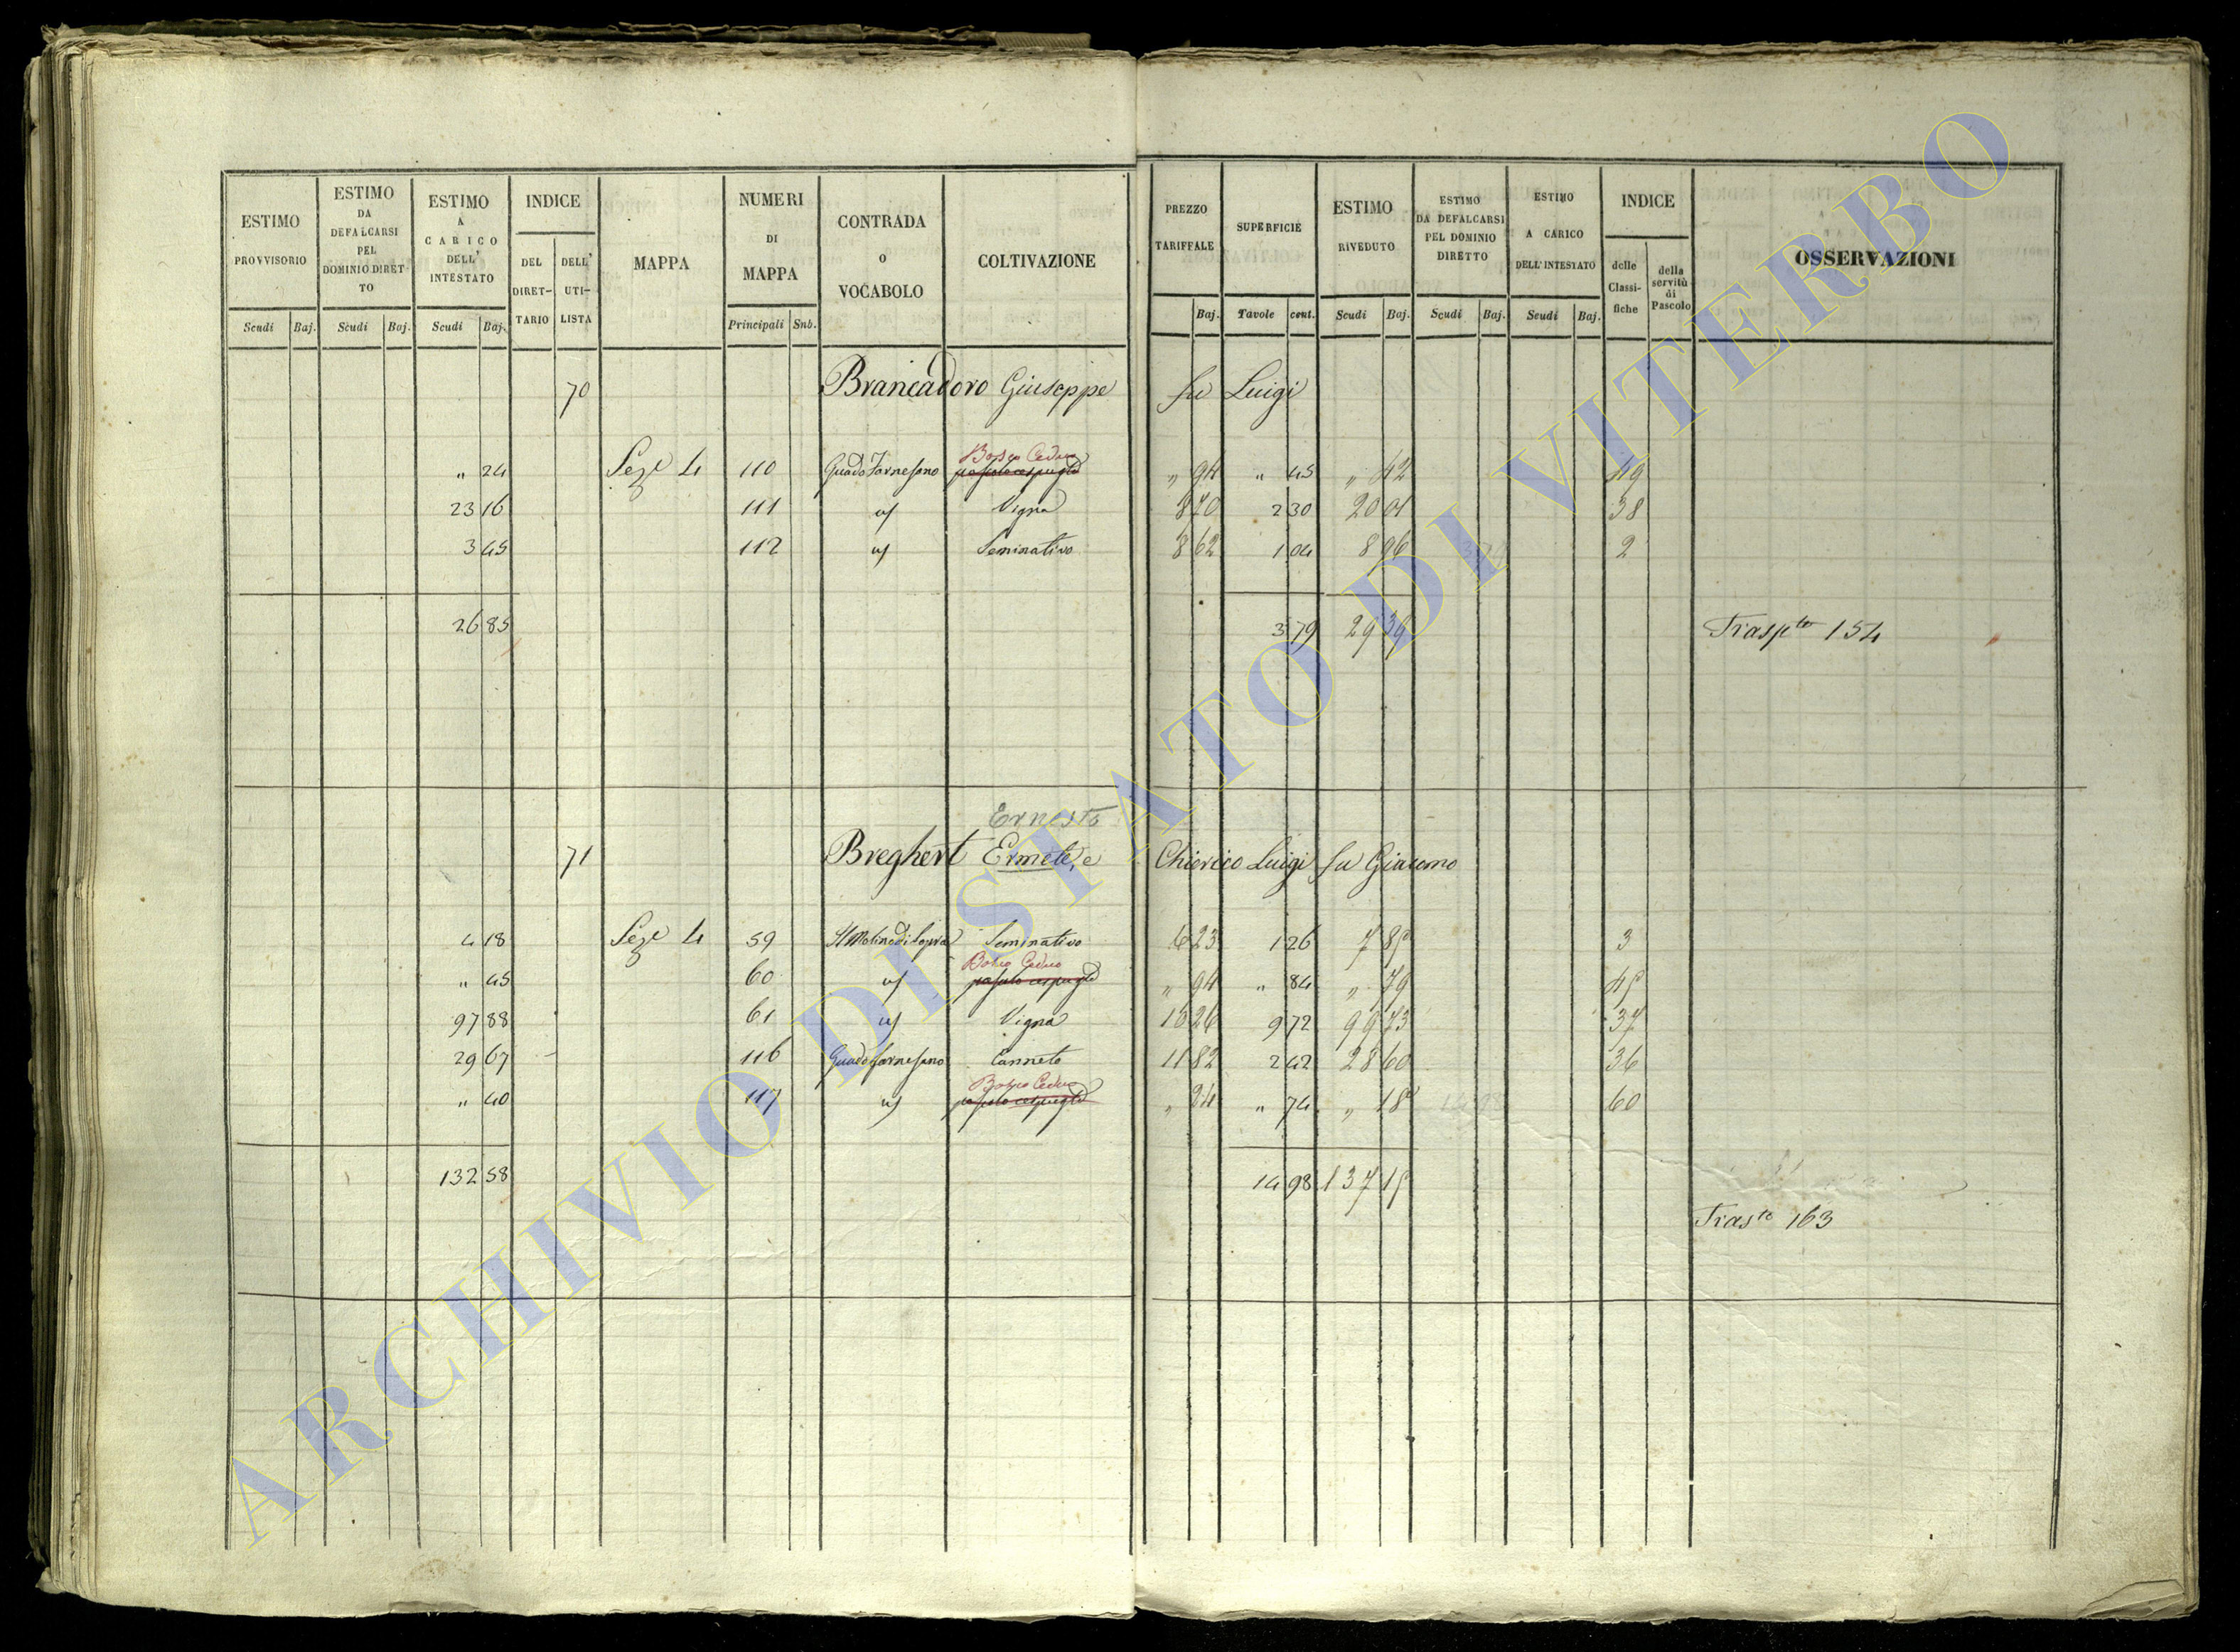 ESTIMO PROVVISORIO
Scudi Baj.
ESTIMO DA DEFALCARSI PEL DOMINIO DIRETTO
Scudi Baj.
ESTIMO A CARICO DELL' INTESTATO
Scudi Baj.
INDICE
DEL DIRETTARIO
DELL' UTILISTA
MAPPA
NUMERI DI MAPPA
Principali Sub.
CONTRADA O VOCABOLO
COLTIVAZIONE
PREZZO TARIFFALE
Baj.
SUPERFICIE
Tavole cent.
ESTIMO RIVEDUTO
Scudi Baj.
ESTIMO DA DEFALCARSI PEL DOMINIO DIRETTO
Scudi Baj.
ESTIMO A CARICO DELL' INTESTATO
Scudi Baj.
INDICE
delle Classifiche
della servitù di Pascolo
OSSERVAZIONI
70 Brancadoro Giuseppe fu Luigi
Bosco Ceduo
" 24 Seze 4 110 Guado Farnesano pascolo cespugto " 94 " 45 " 42 49
23 16 111 Vigna 8 70 2 30 20 01 38
3 45 112 Seminativo 8 62 1 04 8 96 2
26 85 3 79 29 39 Traspto 154
Ernesto
71 Breghert Ermete, e Chierico Luigi fu Giacomo
4 18 Seze 4 59 Il Molino di Sopra Seminativo 6 23 1 26 7 85 3
Bosco Ceduo
" 45 60 pascolo cespugto " 94 " 84 " 79 45
97 88 61 Vigna 10 26 9 72 99 73 37
29 67 116 Guado Farnesano Canneto 11 82 2 42 28 60 36
Bosco Ceduo
" 40 117 pascolo cespugto " 24 " 74 " 18 60
132 58 14 98 137 15
Traste 163
ARCHIVIO DI STATO DI VITERBO